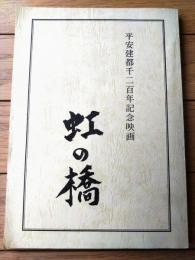 平安建都千二百年記念映画
虹の橋